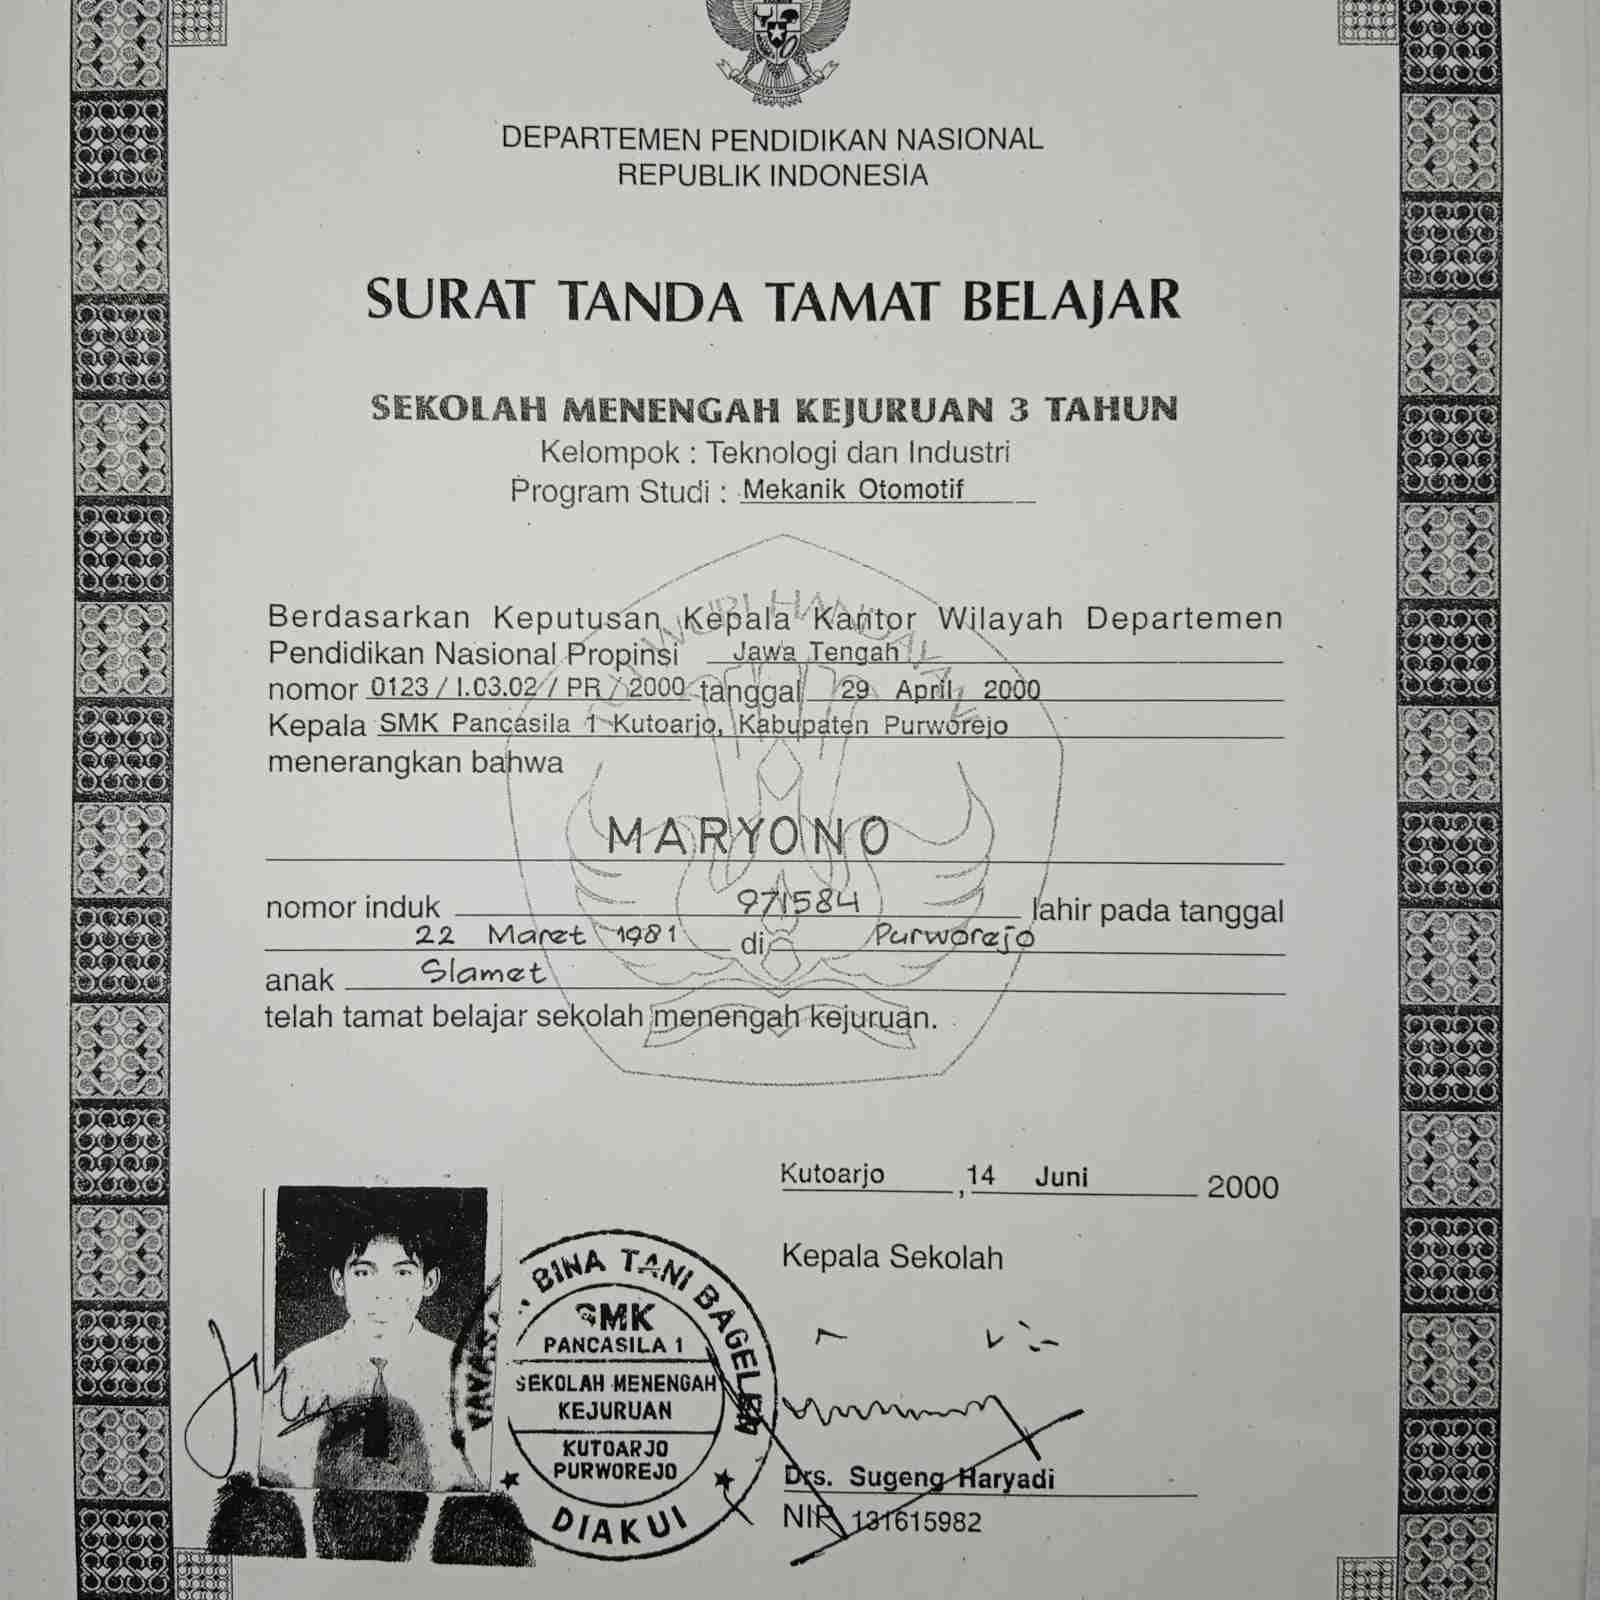 DEPARTEMEN PENDIDIKAN NASIONAL
REPUBLIK INDONESIA
SURAT TANDA TAMAT BELAJAR
SEKOLAH MENENGAH KEJURUAN 3 TAHUN
Kelompok : Teknologi dan Industri
Program Studi : Mekanik Otomotif
Berdasarkan Keputusan Kepala Kantor Wilayah Departemen
Pendidikan Nasional Propinsi Jawa Tengah
nomor 0123 / I.03.02 / PR / 2000 tanggal 29 April 2000
Kepala SMK Pancasila 1 Kutoarjo, Kabupaten Purworejo
menerangkan bahwa
MARYONO
nomor induk 971584 lahir pada tanggal
22 Maret 1981 di Purworejo
anak Slamet
telah tamat belajar sekolah menengah kejuruan.
Kutoarjo, 14 Juni 2000
Kepala Sekolah
BINA TANI BAGELEN
SMK
PANCASILA 1
SEKOLAH MENENGAH
KEJURUAN
KUTOARJO
PURWOREJO
DIAKUI
Drs. Sugeng Haryadi
NIP 131615982